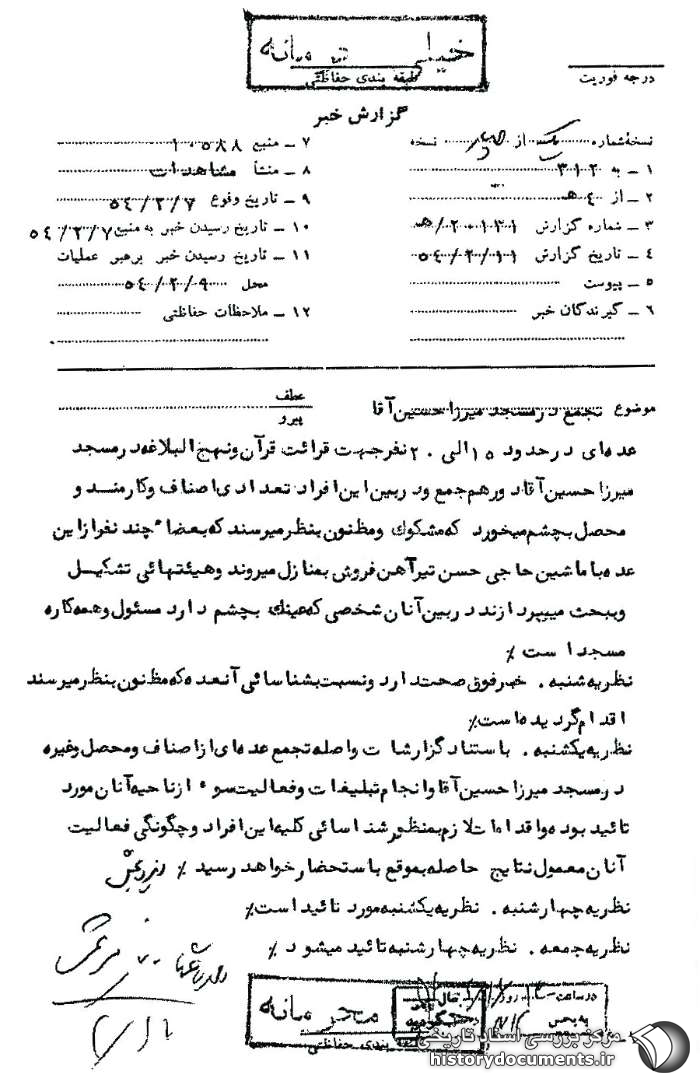 خیلی محرمانه
طبقه بندی حفاظتی
درجه فوریت
گزارش خبر
نسخه شماره یک از چهار نسخه
۱ ـ به ۳۱۲
۲ ـ از ۴ هـ
۳ ـ شماره گزارش ۲۰۱۳۱/هـ
۴ ـ تاریخ گزارش ۵۴/۲/۱۱
۵ ـ پیوست
۶ ـ گیرندگان خبر
۷ ـ منبع ۱۰۵۸۸
۸ ـ منشأ مشاهدات
۹ ـ تاریخ وقوع ۵۴/۲/۷
۱۰ ـ تاریخ رسیدن خبر به منبع ۵۴/۲/۷
۱۱ ـ تاریخ رسیدن خبر برهبر عملیات
محل ۵۴/۲/۹
۱۲ ـ ملاحظات حفاظتی
موضوع تجمع در مسجد میرزا حسین آقا
عطف
پیرو
عده ای در حدود ۱۵ الی ۲۰ نفر جهت قرائت قرآن و نهج البلاغه در مسجد
میرزا حسین آقا دور هم جمع و در بین این افراد تعدادی اصناف و کارمند و
محصل بچشم میخورد که مشکوک و مظنون بنظر میرسند که بعضاً چند نفر از این
عده با ماشین حاجی حسن تیرآهن فروش بمنازل میروند و هیئتهائی تشکیل
و ببحث میپردازند در بین آنان شخصی که عینک بچشم دارد مسئول و همه کاره
مسجد است ٪
نظریه شنبه . خبر فوق صحت دارد و نسبت بشناسائی آنعده که مظنون بنظر میرسند
اقدام گردیده است٪
نظریه یکشنبه . با ستناد گزارشات واصله تجمع عده ای از اصناف و محصل و غیره
در مسجد میرزا حسین آقا و انجام تبلیغات و فعالیت سوء از ناحیه آنان مورد
تائید بوده و اقدامات لازم بمنظور شناسائی کلیه این افراد و چگونگی فعالیت
آنان معمول نتایج حاصله بموقع باستحضار خواهد رسید ٪
نظریه چهارشنبه . نظریه یکشنبه مورد تائید است٪
نظریه جمعه . نظریه چهارشنبه تائید میشود ٪
محرمانه
طبقه بندی حفاظتی
در ساعت
روز
به بخش
مرکز بررسی اسناد تاریخی
historydocuments.ir